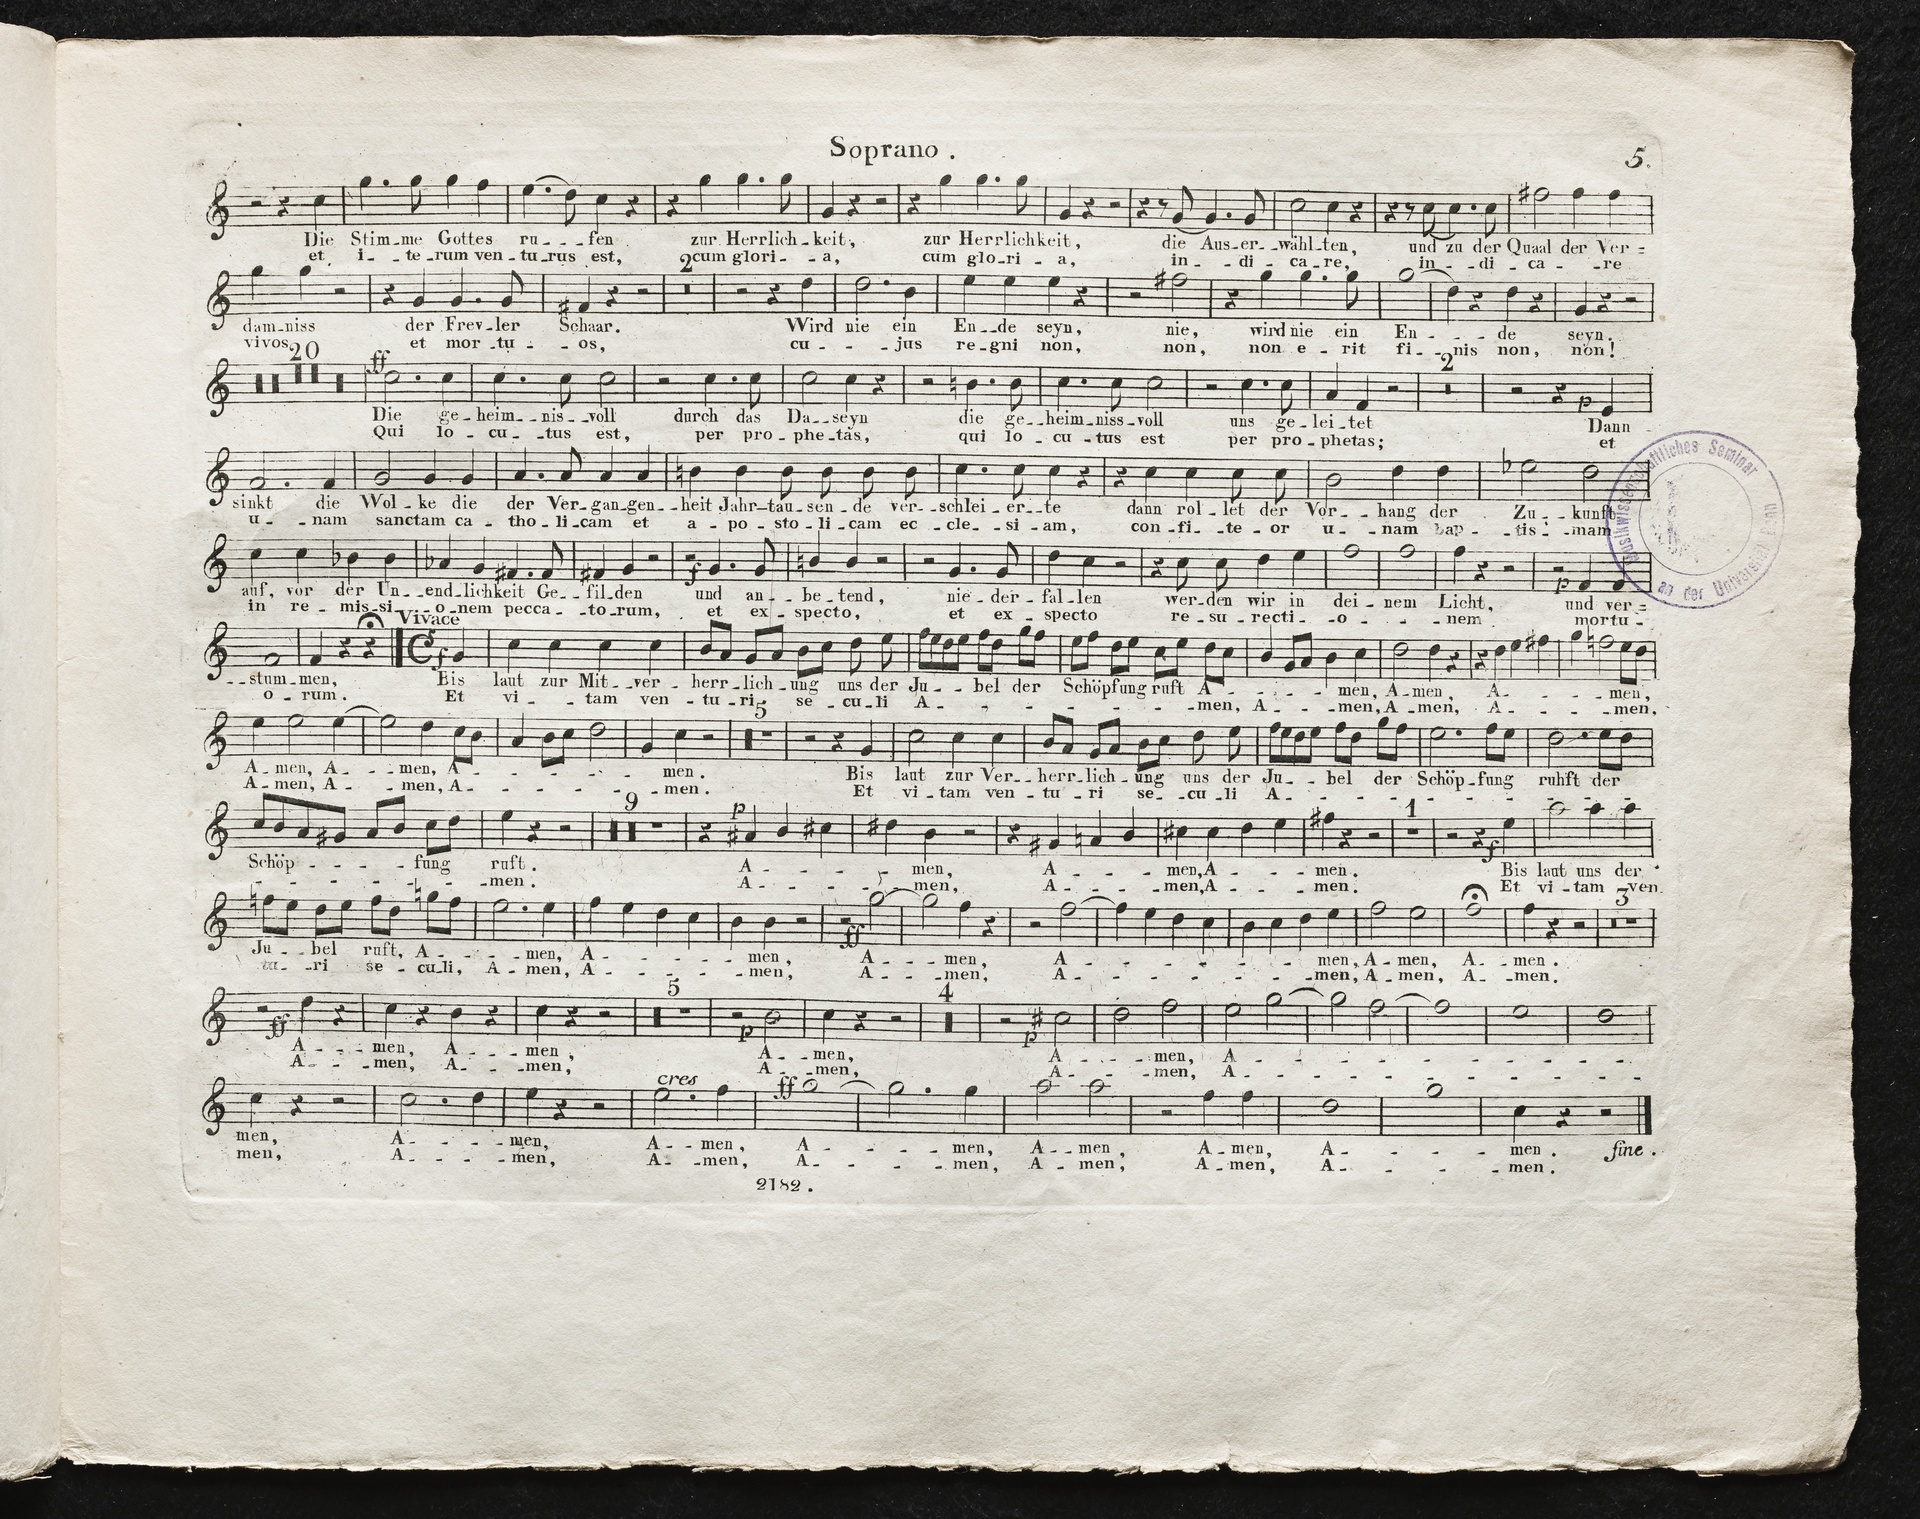 Soprano .
5.
Die Stim--me Gottes ru---fen zur Herrlich-keit, zur Herrlichkeit, die Aus-er--wähl-ten, und zu der Quaal der Ver=
et i--te-rum ven-tu-rus est, cum glori--a, cum glo-ri-a, in--di-ca-re, in--di-ca--re
2
dam-niss der Frev-ler Schaar. Wird nie ein En--de seyn, nie, wird nie ein En----de seyn.
vivos et mor-tu--os, cu---jus re-gni non, non, non e-rit fi--nis non, non!
20
ff
2
p
Die ge-heim--nis--voll durch das Da--seyn die ge--heim-niss-voll uns ge-lei-tet Dann
Qui lo-cu--tus est, per pro-phe-tas, qui lo-cu-tus est per pro-phetas; et
sinkt die Wol-ke die der Ver-gan-gen--heit Jahr-tau-sen-de ver--schlei-er-te dann rol-let der Vor-hang der Zu--kunft
u--nam sanctam ca-tho-li-cam et a-po-sto-li-cam ec-cle-si-am, con-fi-te-or u--nam bap-tis-mam
f
p
auf, vor der Un--end-lichkeit Ge-fil-den und an--be-tend, nie-der-fal-len wer-den wir in dei-nem Licht, und ver=
in re-mis-si--o-nem pecca--to-rum, et ex-specto, et ex-specto re-su-recti-o--nem mortu-
Vivace
f
--stum-men, Bis laut zur Mit--ver-herr-lich-ung uns der Ju--bel der Schöpfung ruft A----men, A-men, A----men,
o-rum. Et vi--tam ven-tu-ri, se-cu-li A-------men, A---men, A-men, A----men,
5
A-men, A---men, A------men. Bis laut zur Ver--herr-lich-ung uns der Ju--bel der Schöp-fung ruhft der
A-men, A---men, A------men. Et vi-tam ven-tu-ri se--cu-li A-------
9
p
1
f
Schöp----fung ruft. A----men, A---men, A---men. Bis laut uns der
------men. A----men, A---men, A---men. Et vi-tam ven.
ff
3
Ju--bel ruft, A---men, A-----men, A---men, A------men, A-men, A-men.
tu--ri se-cu-li, A-men, A-----men, A---men, A------men, A-men, A-men.
ff
5
p
4
p
A---men, A---men, A--men, A---men, A--------
A---men, A---men, A--men, A---men, A--------
cres
ff
men, A----men, A--men, A----men, A--men, A-men, A-----men. fine.
men, A----men, A--men, A----men, A--men, A-men, A-----men.
2182.
Musikwissenschaftliches Seminar
an der Universität